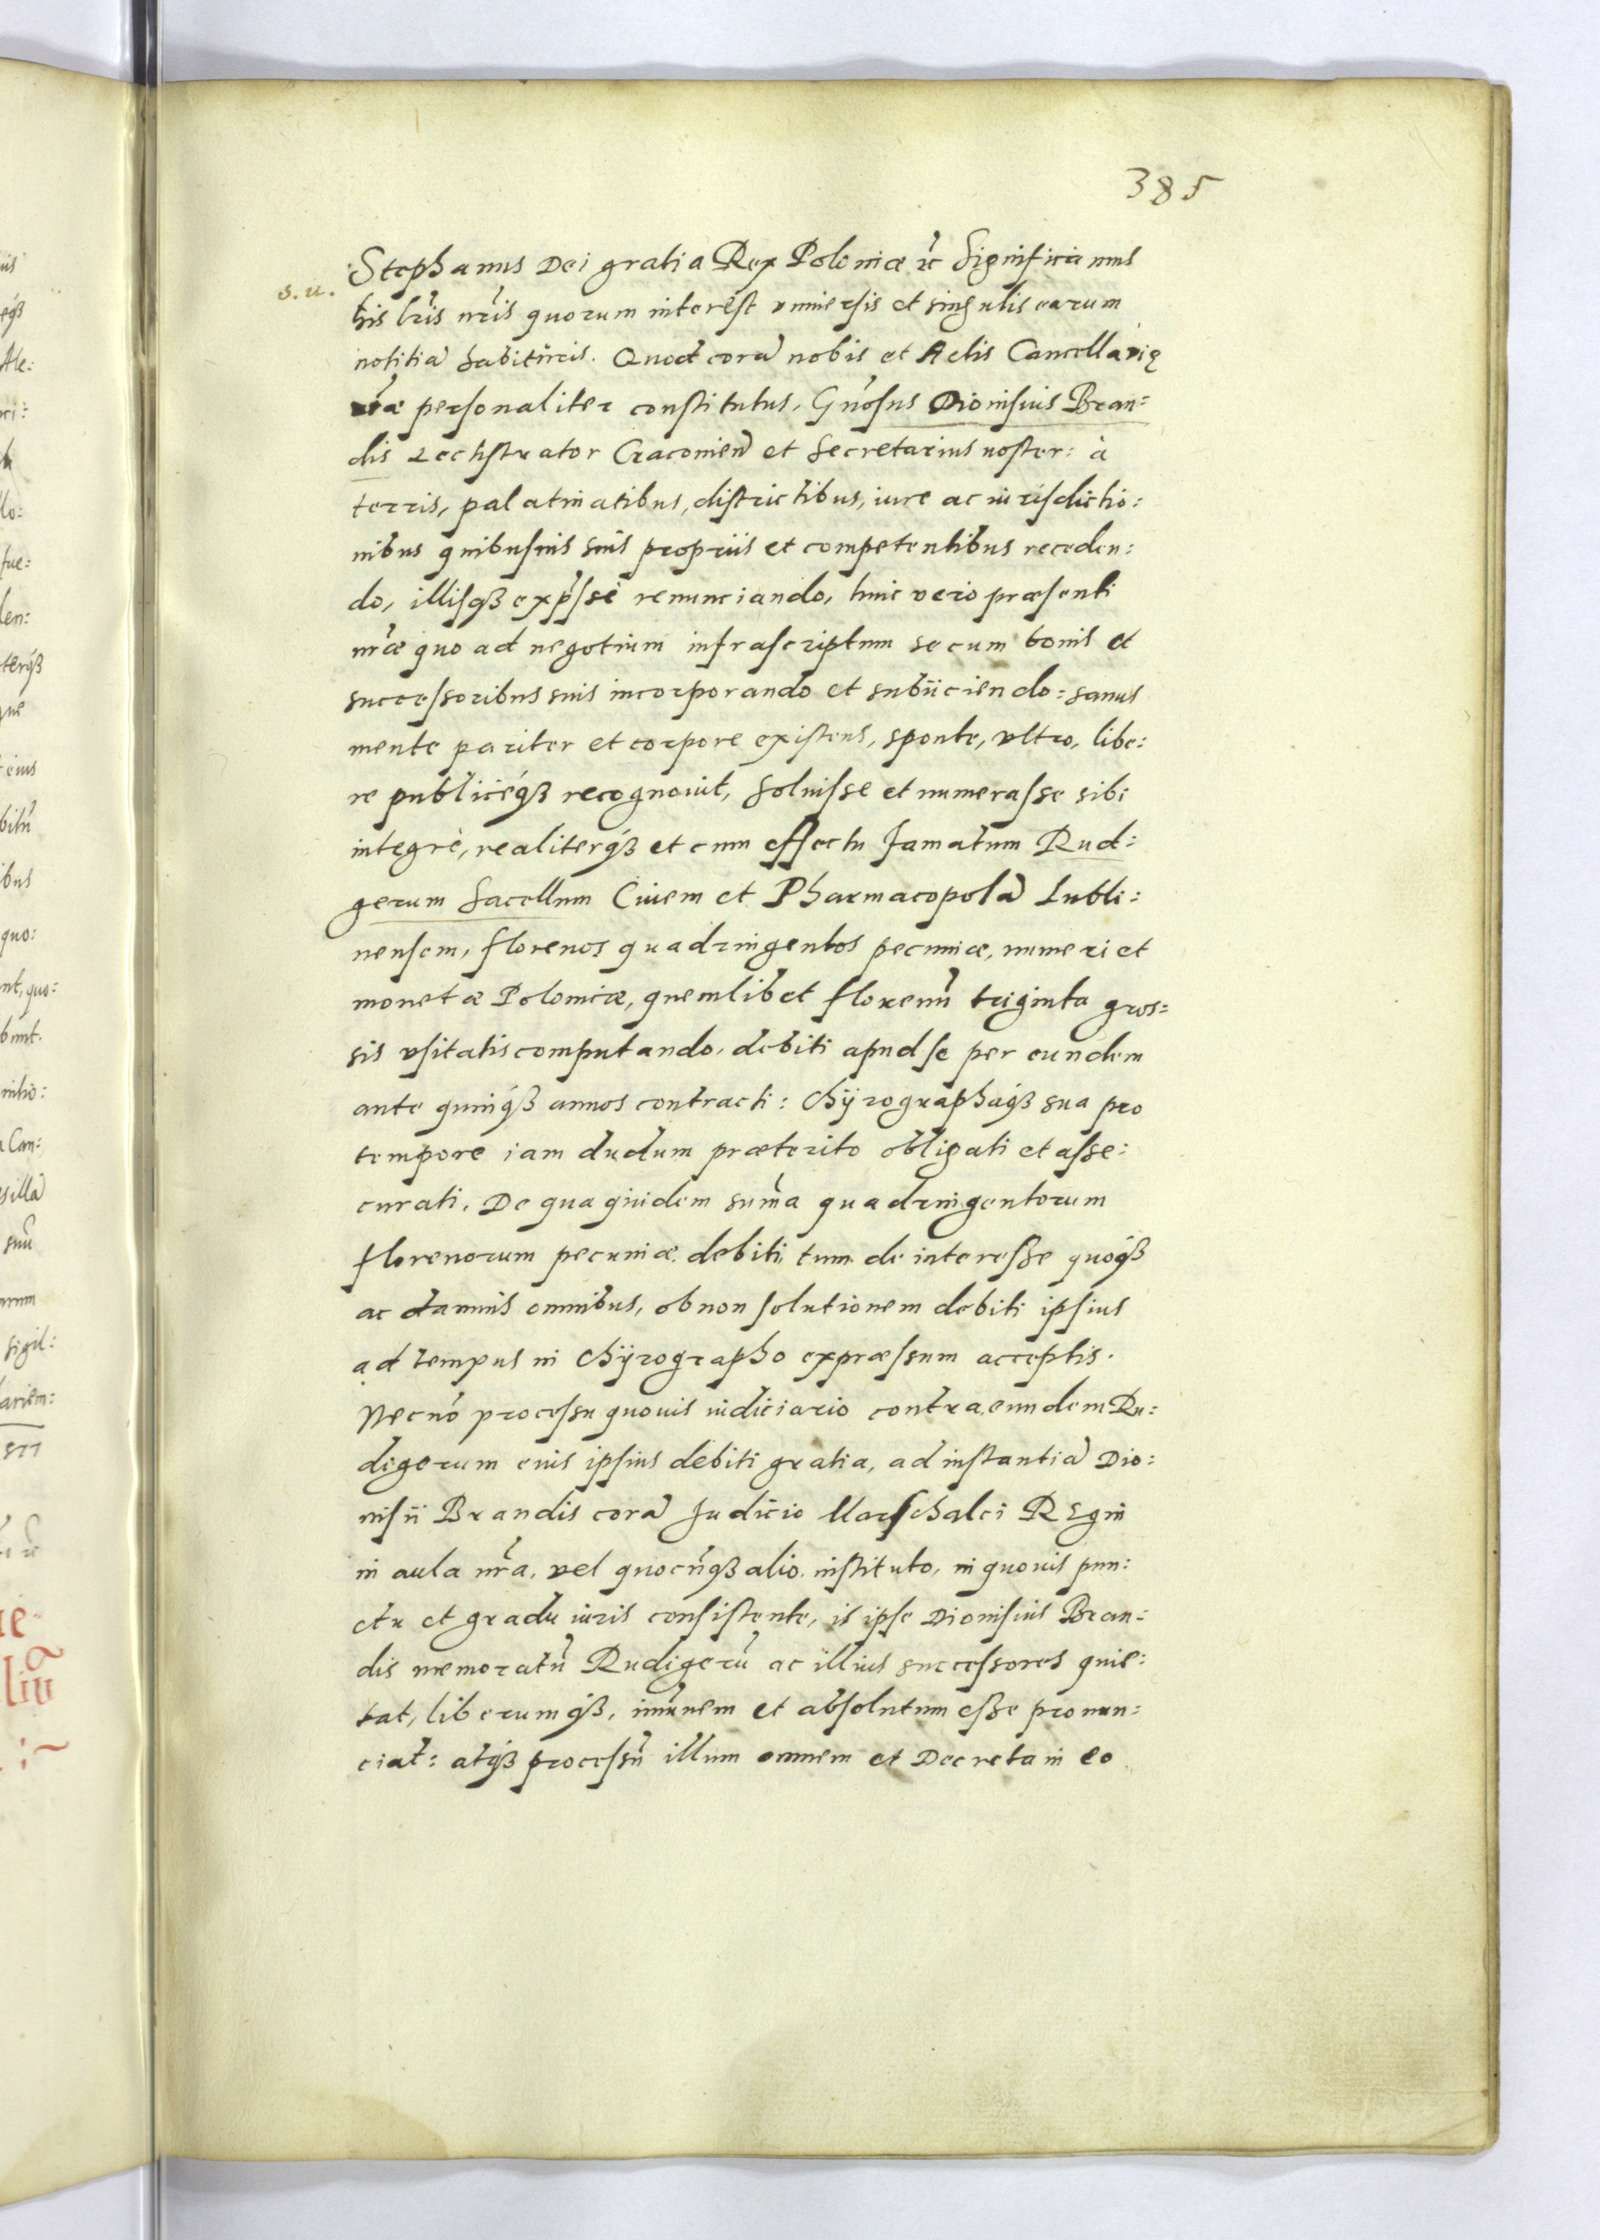 385
s. u.
Stephanus Dei gratia Rex Poloniæ &c Significamus
his lr̃is nr̃is quorum interest vniuersis et singulis earum
notitiã habituris. Quod corã nobis et Actis Cancellarię
nr̃æ personaliter constitutus, Gñosus Dionisius Bran:
dis Lechstrator Cracovieñ et Secretarius noster: à
terris, palatinatibus, districtibus, iure ac iurisdictio:
nibus quibusuis suis propriis et competentibus receden:
do, illisqȝ exp̃sse renunciando, huic vero præsenti
nr̃æ quo ad negotium infrascriptum se cum bonis et
successoribus suis incorporando et subiiciendo: sanus
mente pariter et corpore existens, sponte, vltro, libe:
re publicéqȝ recognouit, soluisse et numerasse sibi
integrè, realiterqȝ et cum effectu famatum Rud:
gerum Sacellum Ciuem et Pharmacopolã Lubli:
nensem, florenos quadringentos pecuniæ, numeri et
monetæ Polonicæ, quemlibet florenũ triginta gros:
sis vsitatis computando, debiti apud se per eundem
ante quinqȝ annos contracti: Chÿrographáqȝ sua pro
tempore iam dudum præterito obligati et asse:
curati. De qua quidem sum̃a quadringentorum
florenorum pecuniæ debiti, tum de interesse quoqȝ
ac damnis omnibus, ob non solutionem debiti ipsius
ad tempus in Chÿrographo expræssum acceptis.
Necnõ processu quouis iudiciario contra eundem Ru:
digerum euis ipsius debiti gratia, ad instantiã Dio:
nisii Brandis corã Judicio Marschalci Regni
in aula nr̃a, vel quocũqȝ alio, instituto, in quouis pun:
ctu et gradu iuris consistente, is ipse Dionisius Bran:
dis memoratũ Rudigerũ ac illius successores quie:
tat, liberumqȝ, im̃unem et absolutum esse pronun:
ciat: atqȝ processũ illum omnem et Decreta in eo